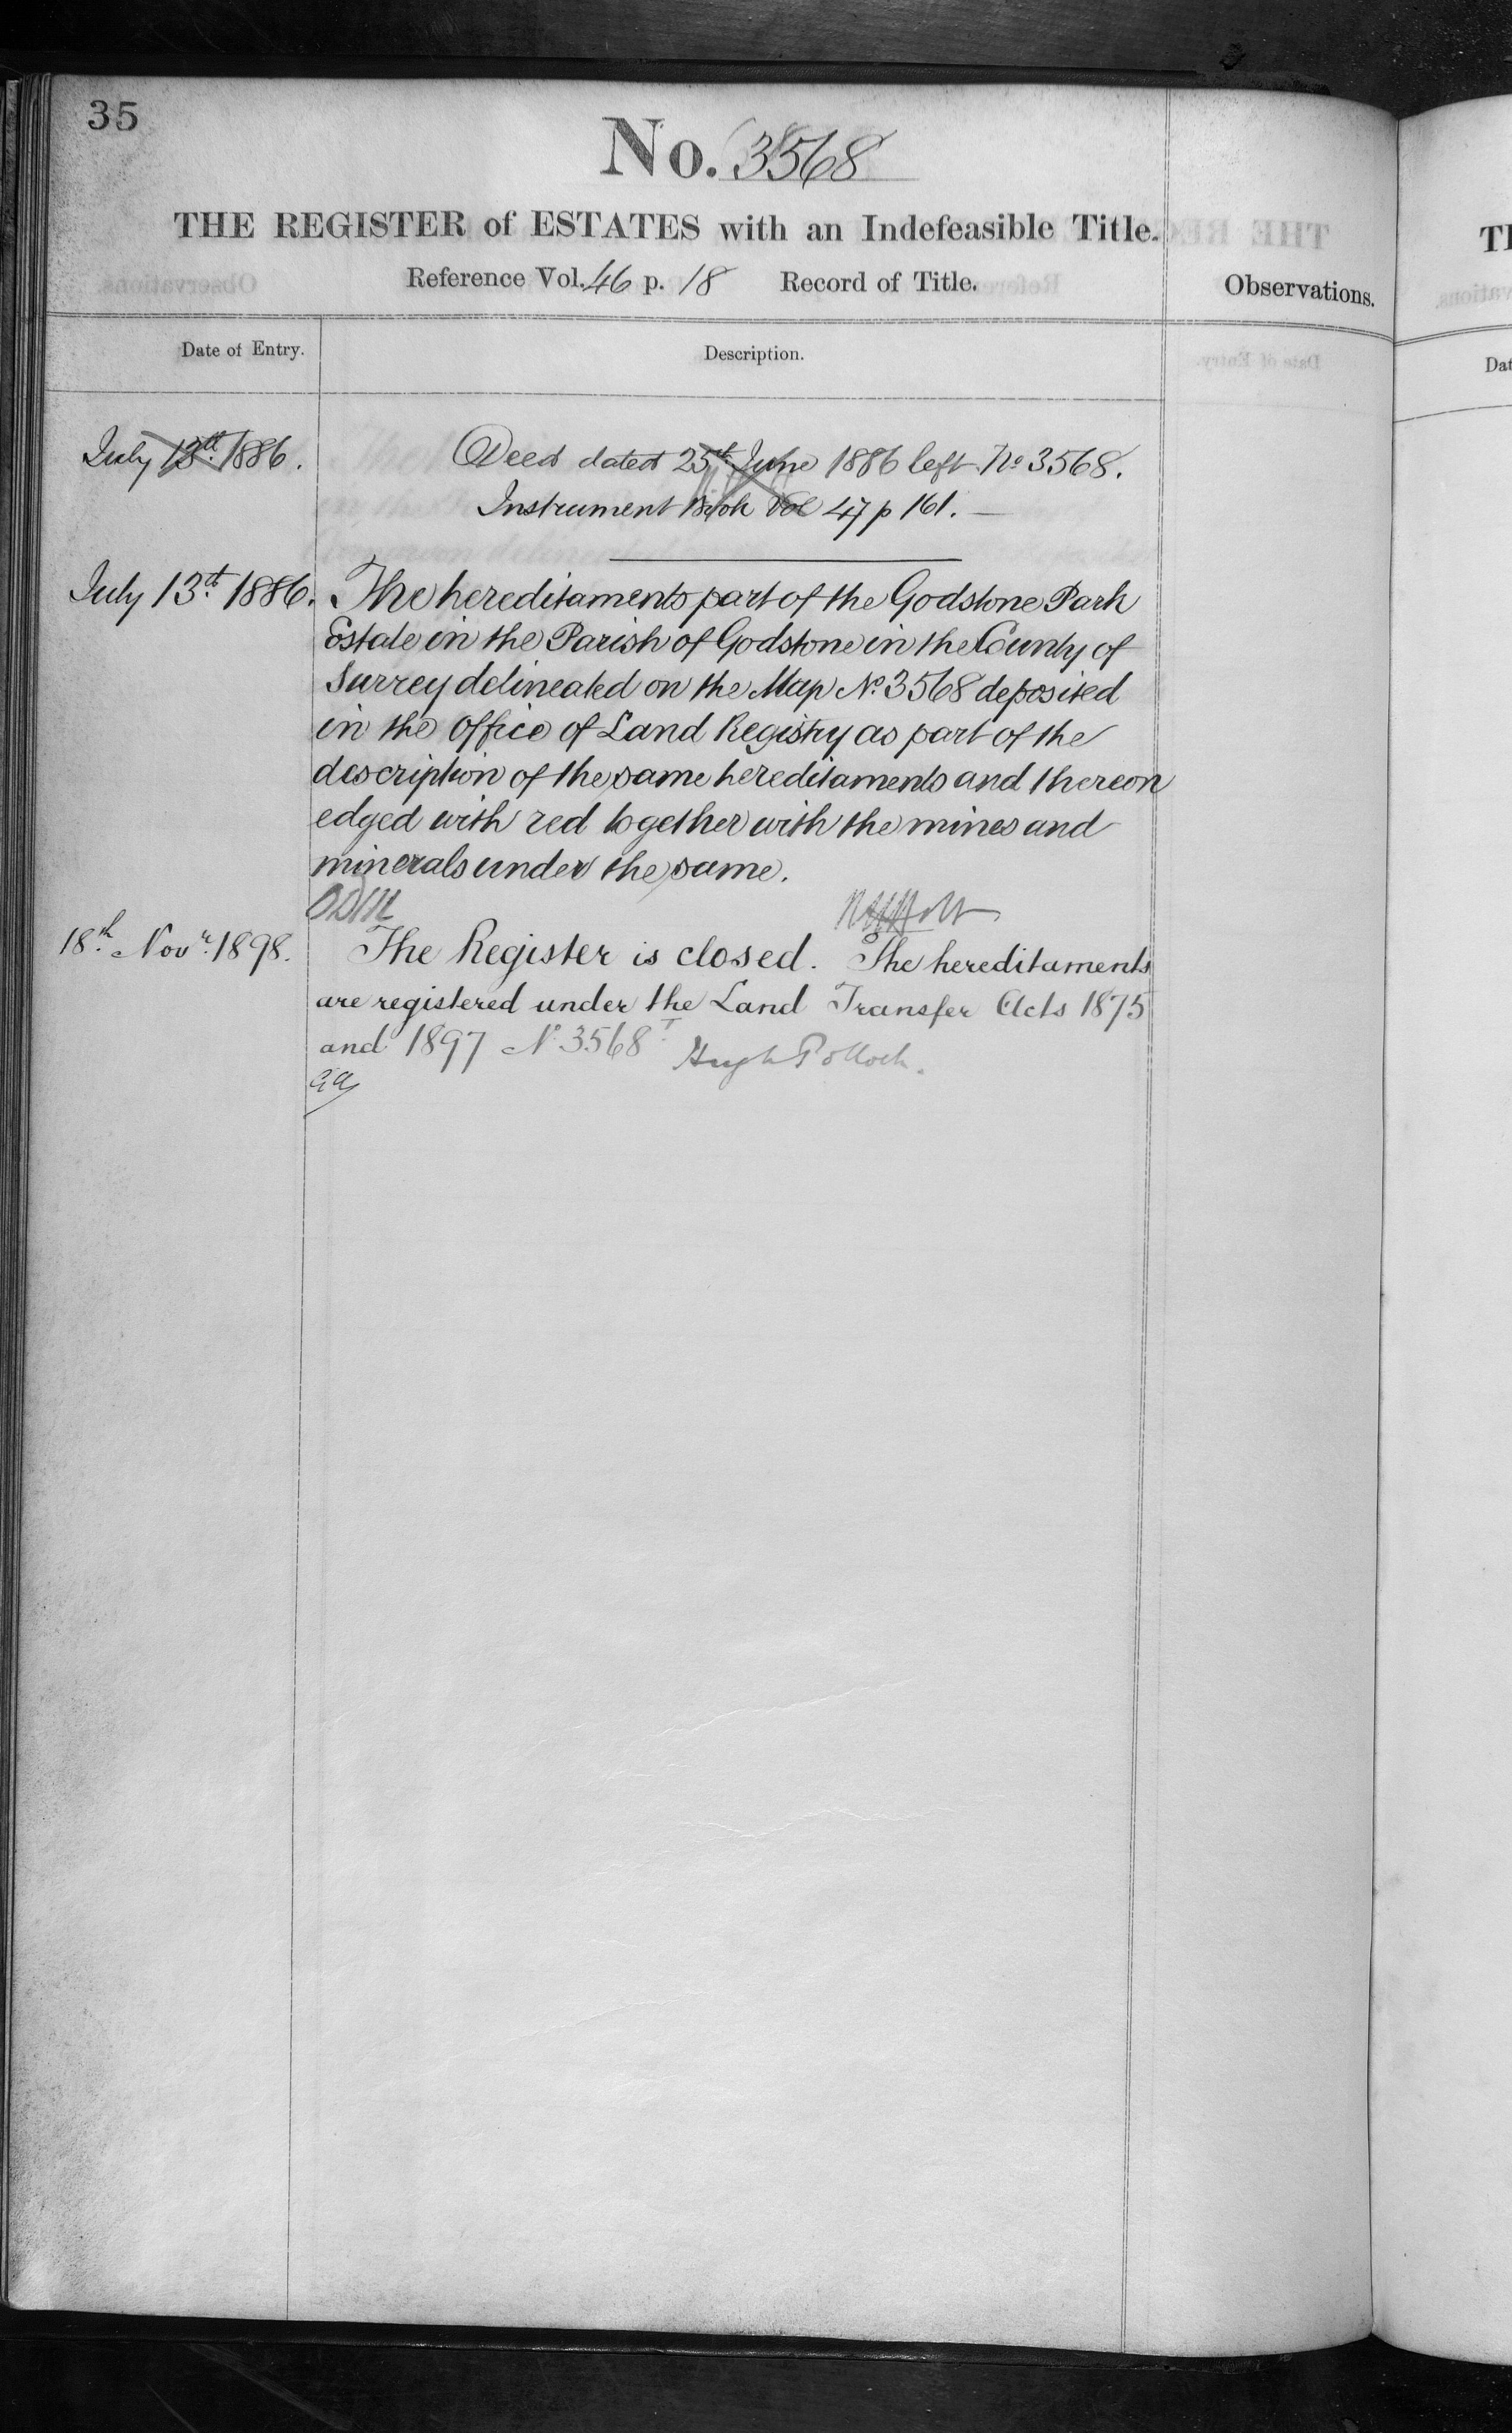 35
No. 3568
THE REGISTER of ESTATES with an Indefeasible Title.
Reference Vol. 46 p. 18 Record of Title.
Observations.
Date of Entry.
Description.
July 13th 1886.
Deed dated 25th June 1886 left No 3568.
Instrument Book Vol 47 p 161.
July 13th 1886.
The hereditaments part of the Godstone Park
Estate in the Parish of Godstone in the County of
Surrey delineated on the Map No 3568 deposited
in the Office of Land Registry as part of the
description of the same hereditaments and thereon
edged with red together with the mines and
minerals under the same.
18th Novr 1898.
The Register is closed. The hereditaments
are registered under the Land Transfer Acts 1875
and 1897 No 3568
Hugh Pollock.